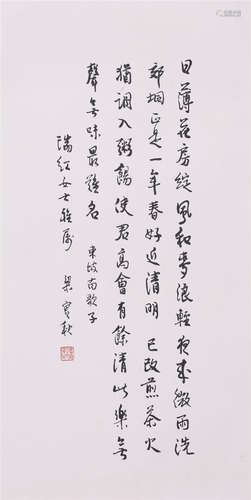 日薄花房綻風和麥浪輕夜來微雨洗
郊坰正是一年春好近清明已改煎茶火
猶調入粥餳使君高會有餘清此樂無
聲無味最難名 東坡南歌子
瑞紅女士雅屬 梁實秋